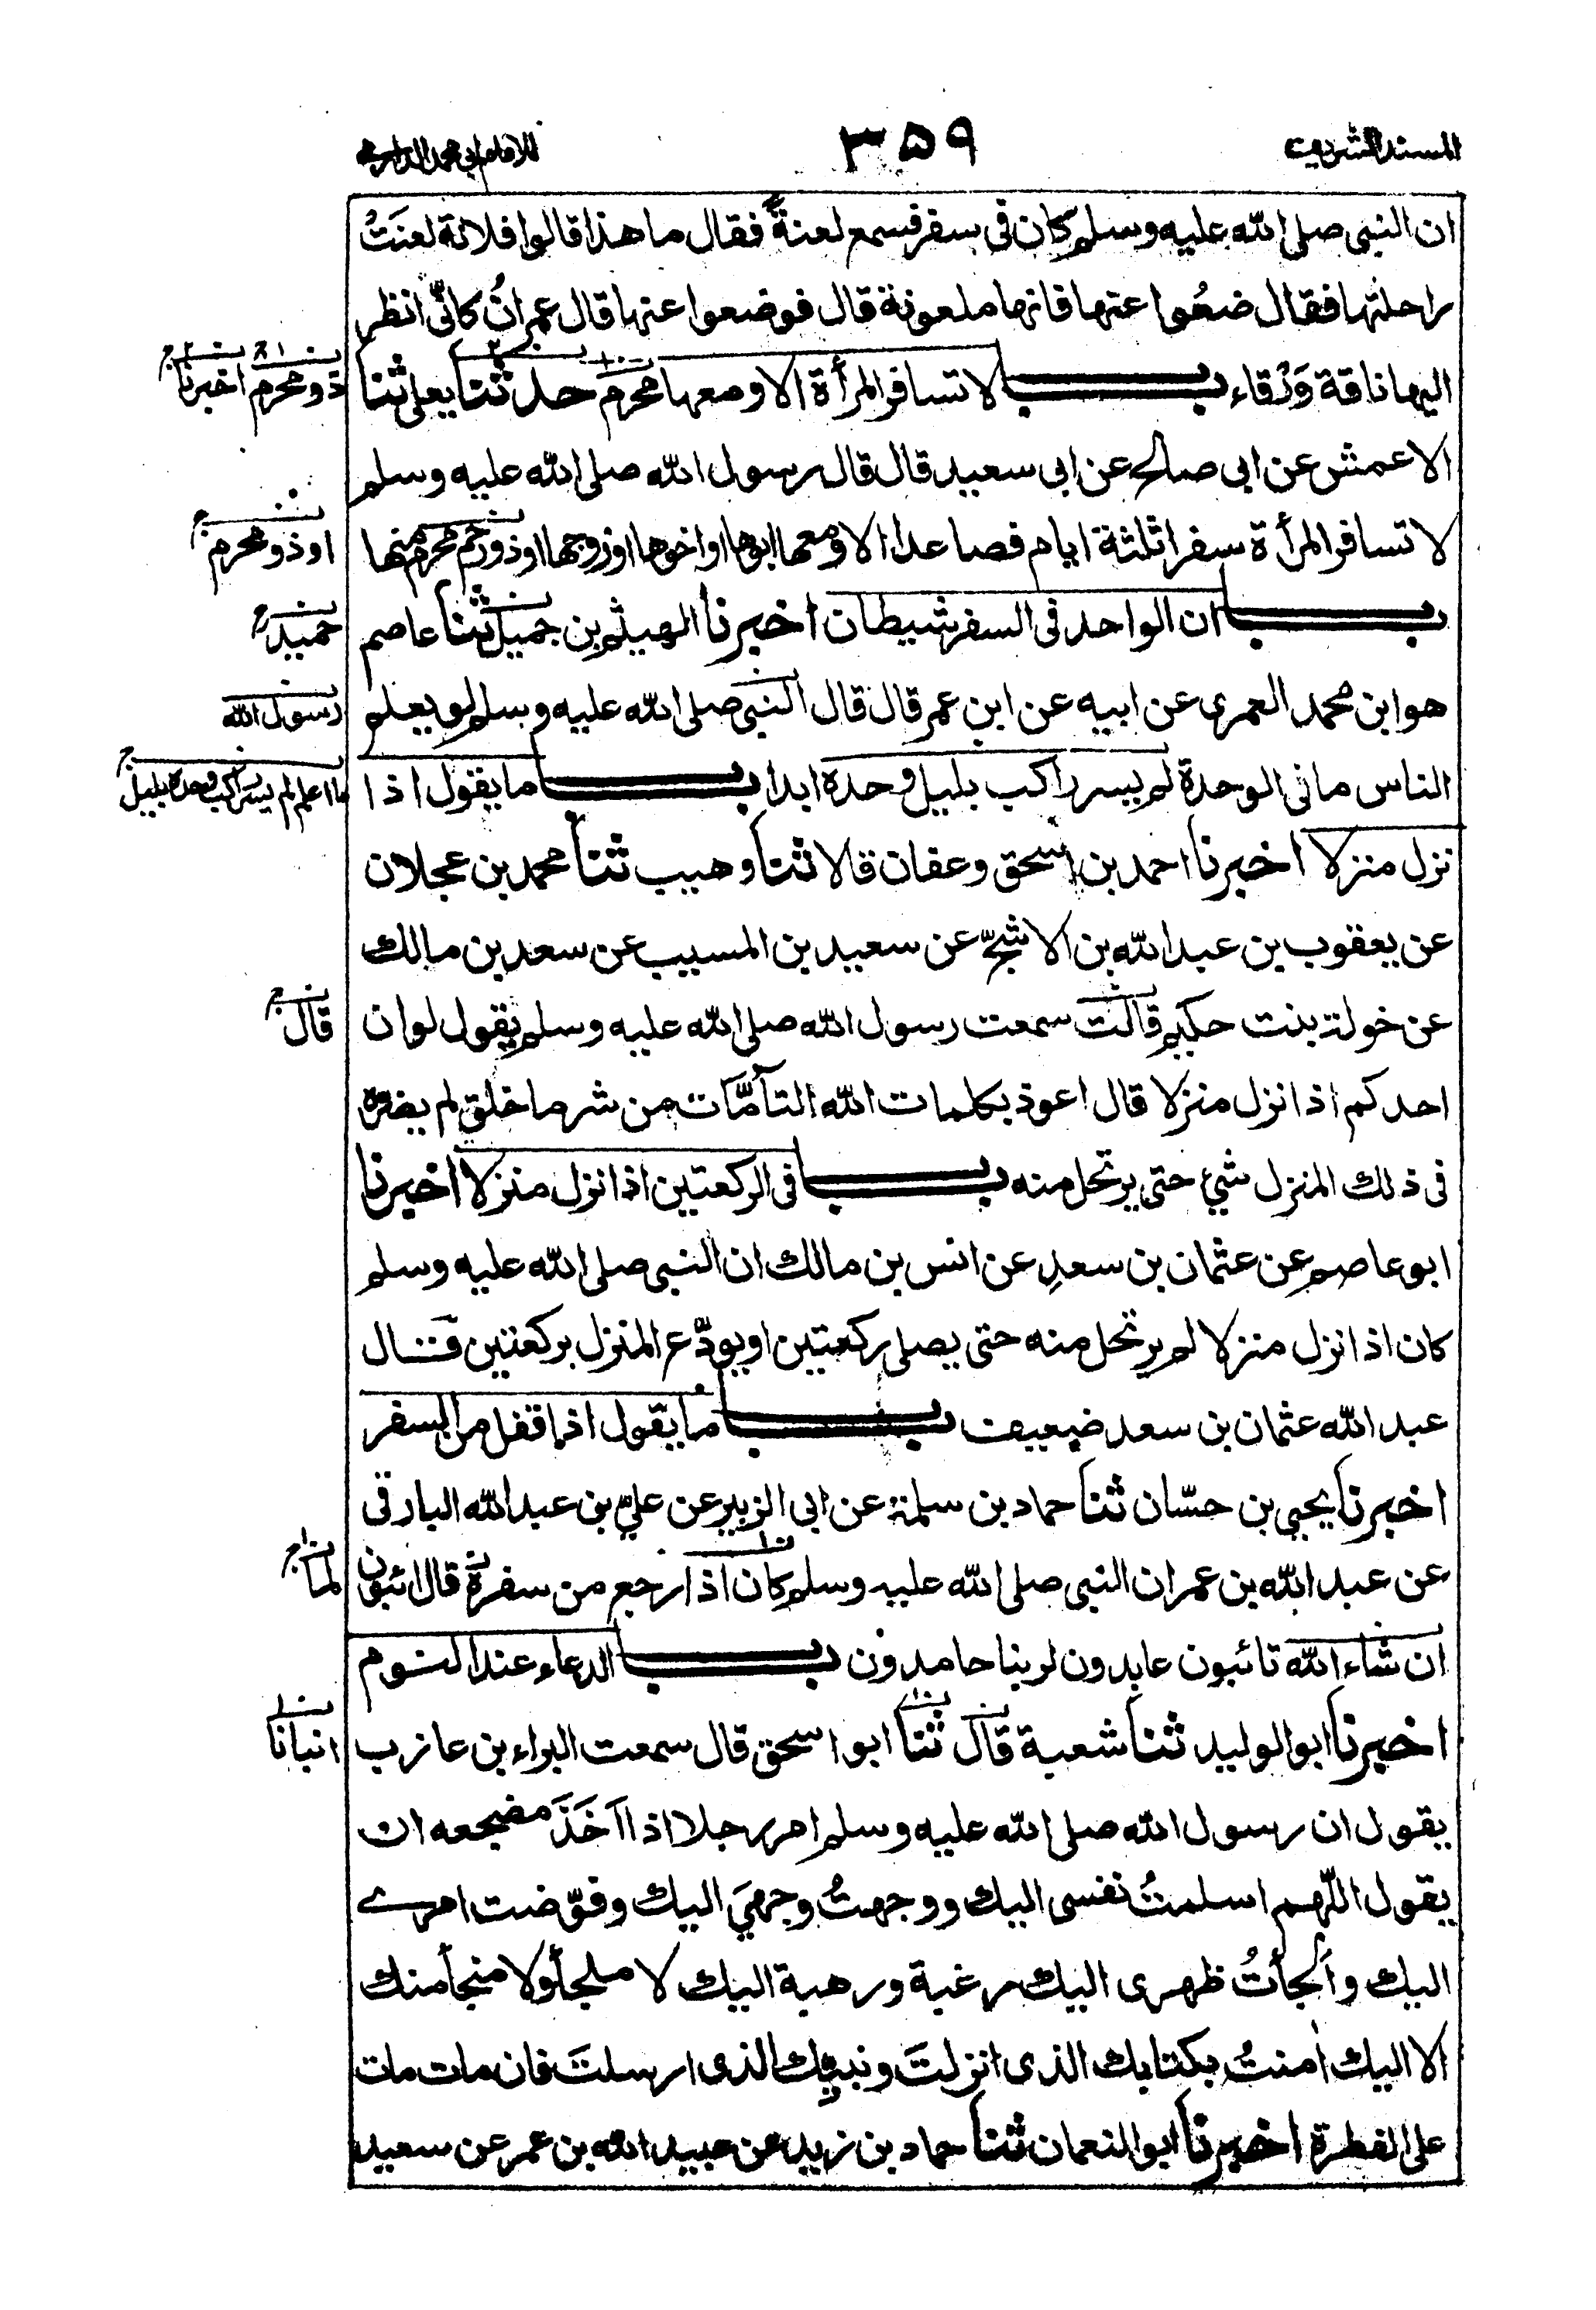 المسند الشريف
٣٥٩
للامام ابی محمد الدارمی
ان النبی صلی الله علیه وسلم کان فی سفر فسمع لعنةً فقال ما هذا قالوا فلانة لعنَتْ
راحلتها فقال ضعُوا عنها فانها ملعونة قال فوضعوا عنها قال عمرانُ کانّی انظر
الیها ناقة وَرْقاء بــاب لا تسافر المرأة الا ومعها محرم حدثنا یعلی ثنا
ذو محرم اخبرنا
الاعمش عن ابی صالح عن ابی سعید قال قال رسول الله صلی الله علیه وسلم
لا تسافر المرأة سفرا ثلثة ایام فصاعدا الا ومعها ابوها او اخوها او زوجها او ذو رحم محرم منها
او ذو محرم
بــاب ان الواحد فی السفر شیطان اخبرنا الهیثم بن جمیل ثنا عاصم
حمید
هو ابن محمد العمری عن ابیه عن ابن عمر قال قال النبی صلی الله علیه وسلم لو یعلم
رسول الله
الناس ما فی الوحدة لم یسر راکب بلیل وحده ابدا بــاب ما یقول اذا
ما اعلم لم یسر راکب وحده بلیل
نزل منزلا اخبرنا احمد بن اسحق وعفان قالا ثنا وهیب ثنا محمد بن عجلان
عن یعقوب بن عبد الله بن الاشجّ عن سعید بن المسیب عن سعد بن مالك
عن خولة بنت حکیم قالت سمعت رسول الله صلی الله علیه وسلم یقول لو ان
قال
احدکم اذا نزل منزلا قال اعوذ بکلمات الله التآمّات من شر ما خلق لم یضره
فی ذلك المنزل شیء حتی یرتحل منه بــاب فی الرکعتین اذا نزل منزلا اخبرنا
ابو عاصم عن عثمان بن سعدٍ عن انس بن مالك ان النبی صلی الله علیه وسلم
کان اذا نزل منزلا لم یرتحل منه حتی یصلی رکعتین او یودّع المنزل برکعتین قــال
عبد الله عثمان بن سعد ضعیف بــاب ما یقول اذا قفل من السفر
اخبرنا یحیی بن حسّان ثنا حماد بن سلمة عن ابی الزبیر عن علیّ بن عبد الله البارقی
عن عبد الله بن عمر ان النبی صلی الله علیه وسلم کان اذا رجع من سفرة قال ائبون
لما
ان شاء الله تائبون عابدون لربنا حامدون بــاب الدعاء عند النوم
اخبرنا ابو الولید ثنا شعبة قال ثنا ابو اسحق قال سمعت البراء بن عازب
انبانا
یقول ان رسول الله صلی الله علیه وسلم امر رجلا اذا اَخَذَ مضجعه ان
یقول اللّهم اسلمتُ نفسی الیك ووجهتُ وجهیَ الیك وفوّضت امری
الیك واَلجأتُ ظهری الیك رغبة ورهبة الیك لا ملجأ ولا منجأ منك
الا الیك اٰمنتُ بکتابك الذی انزلتَ ونبیّك الذی ارسلتَ فان مات مات
علی الفطرة اخبرنا ابو النعمان ثنا حماد بن زید عن عبید الله بن عمر عن سعید